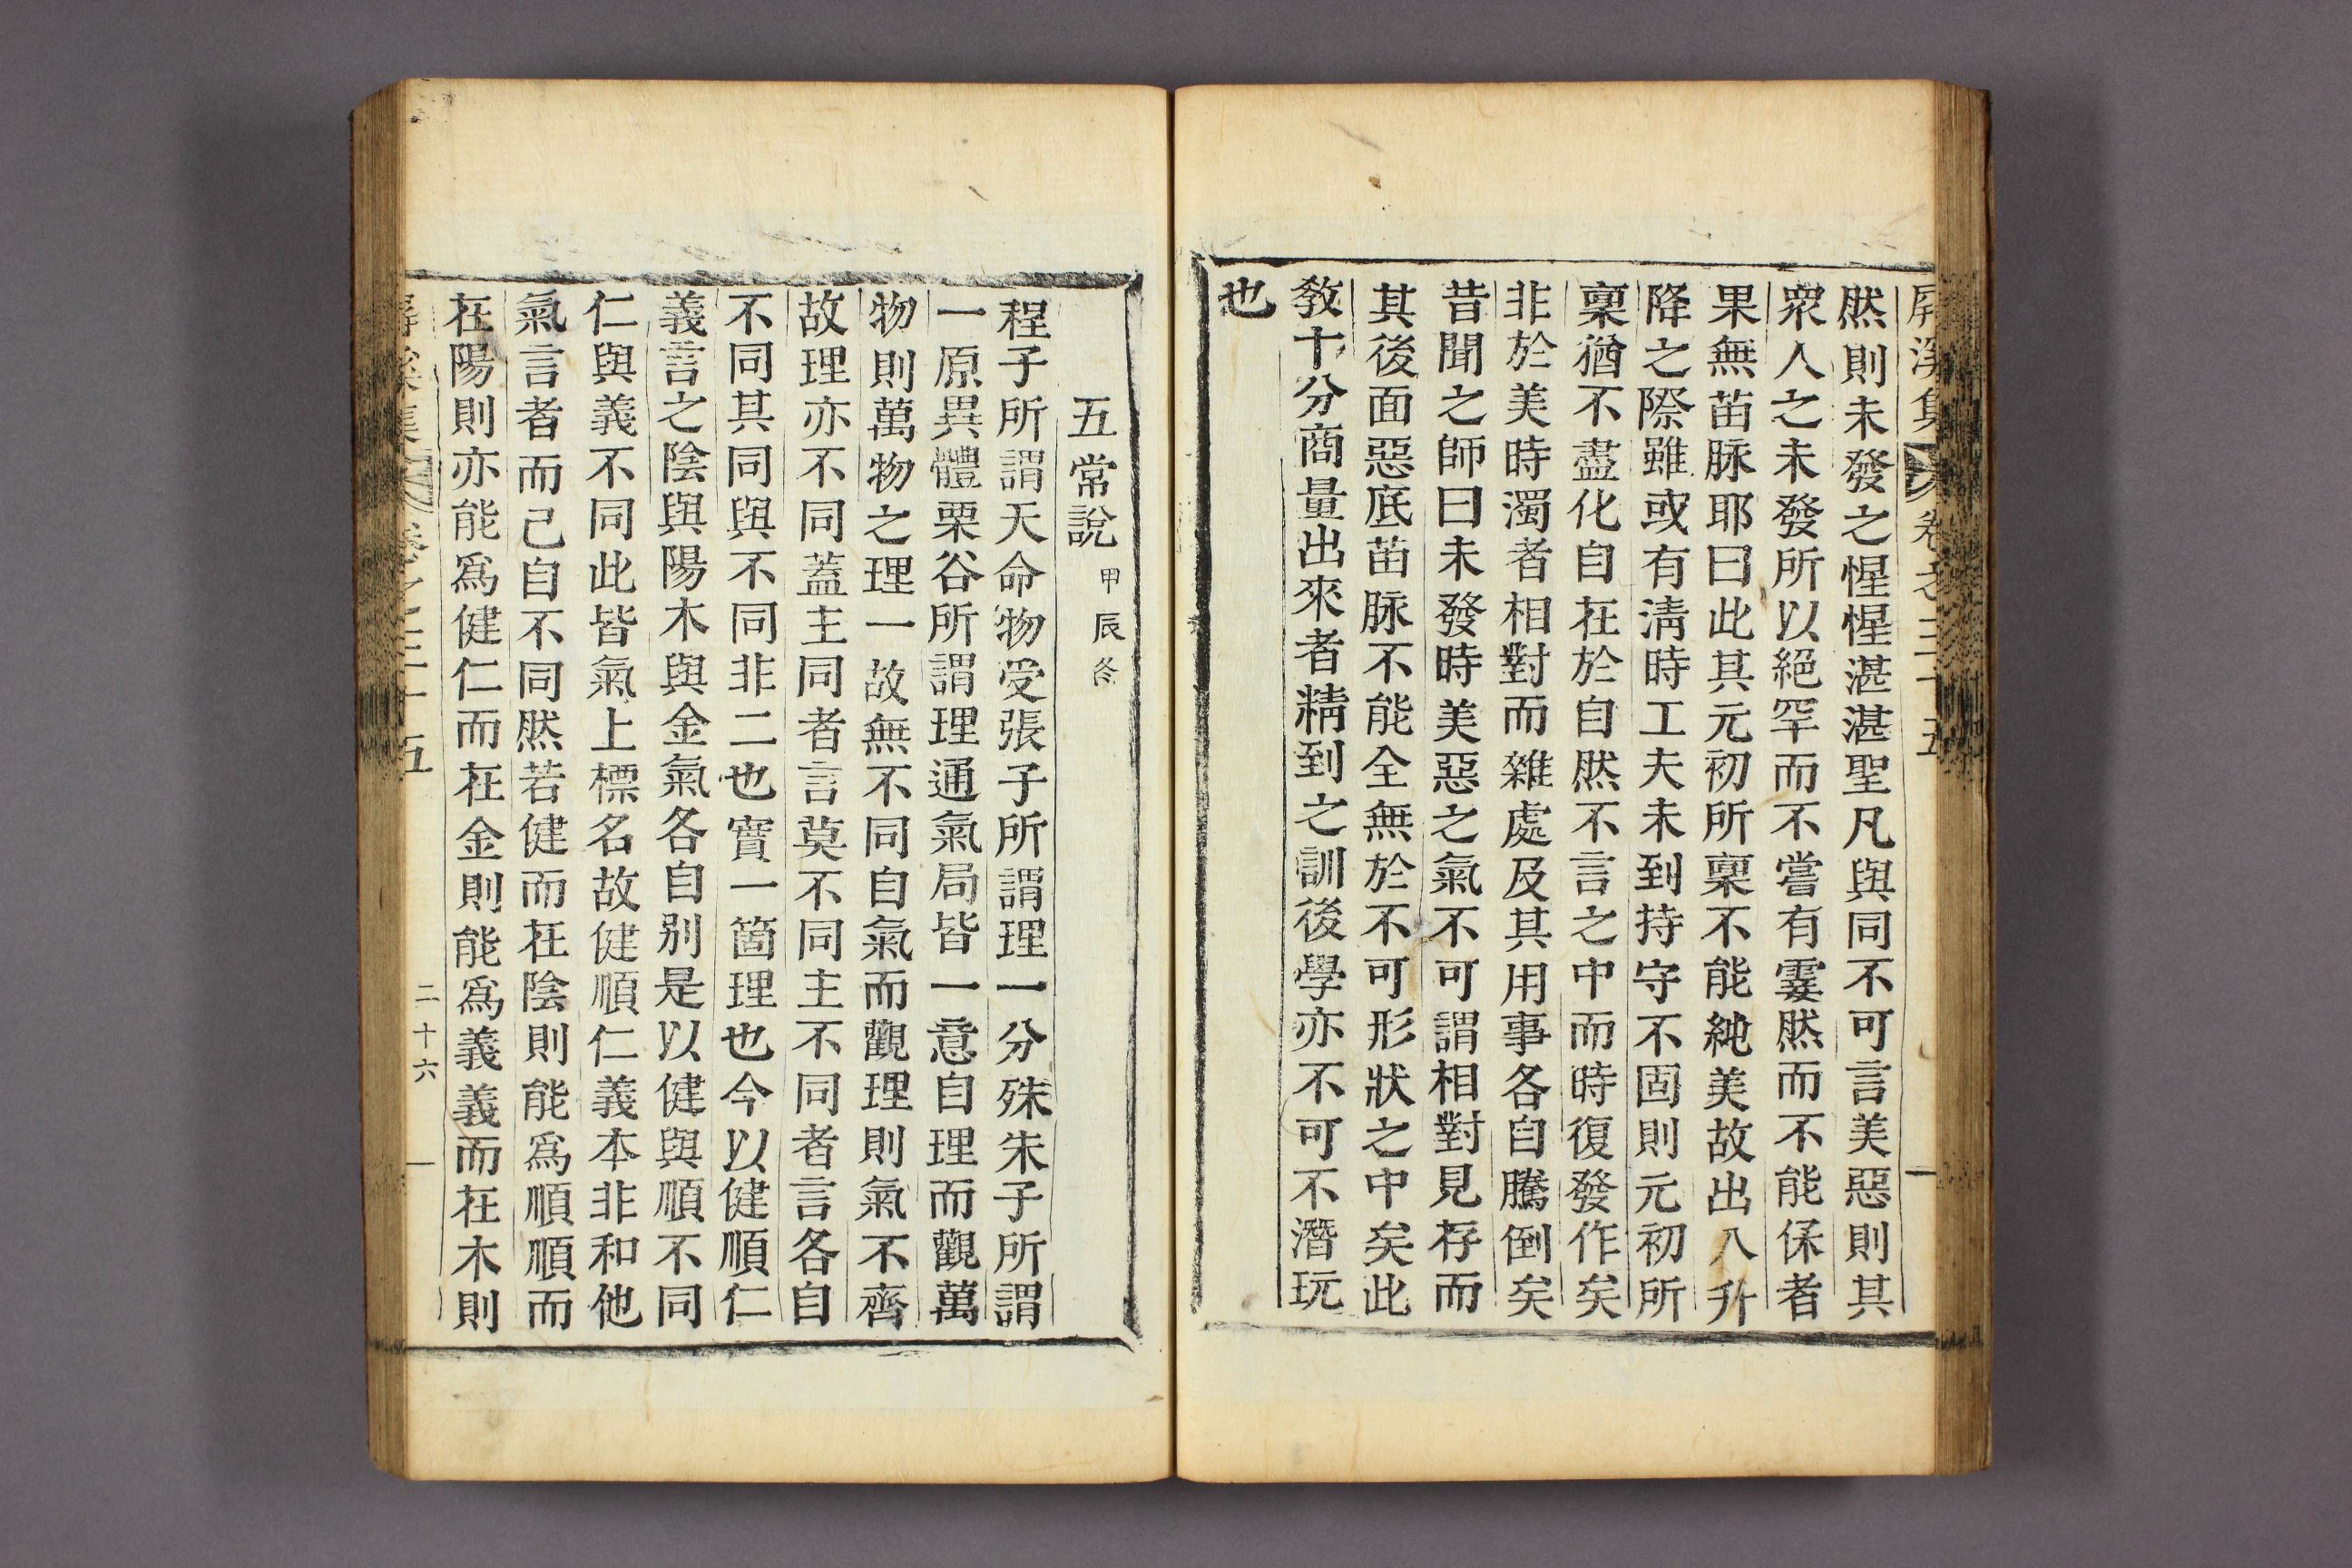 屛溪集 卷之三十五
然則未發之惺惺湛湛聖凡與同不可言美惡則其
衆人之未發所以絕罕而不嘗有霎然而不能保者
果無苗脉耶曰此其元初所稟不能純美故出入升
降之際雖或有淸時工夫未到持守不固則元初所
稟猶不盡化自在於自然不言之中而時復發作矣
非於美時濁者相對而雜處及其用事各自騰倒矣
昔聞之師曰未發時美惡之氣不可謂相對見存而
其後面惡底苗脉不能全無於不可形狀之中矣此
敎十分商量出來者精到之訓後學亦不可不潛玩
也
五常說 甲辰冬
程子所謂天命物受張子所謂理一分殊朱子所謂
一原異體栗谷所謂理通氣局皆一意自理而觀萬
物則萬物之理一故無不同自氣而觀理則氣不齊
故理亦不同蓋主同者言莫不同主不同者言各自
不同其同與不同非二也實一箇理也今以健順仁
義言之陰與陽木與金氣各自別是以健與順不同
仁與義不同此皆氣上標名故健順仁義本非和他
氣言者而已自不同然若健而在陰則能爲順順而
在陽則亦能爲健仁而在金則能爲義義而在木則
屛溪集 卷之三十五 二十六